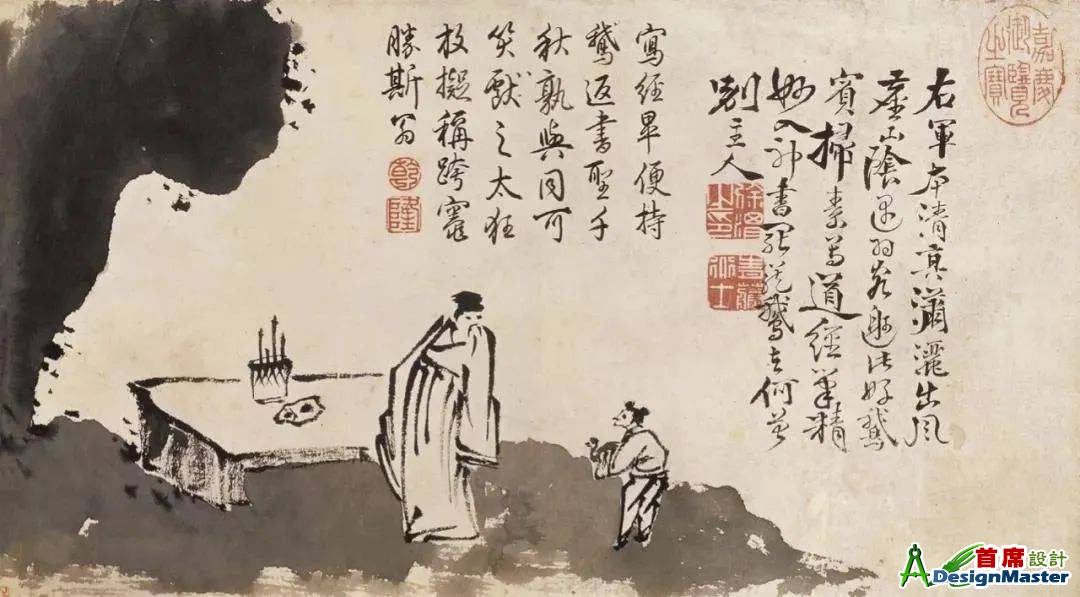 嘉慶御覽之寶
右軍本清真瀟灑出風
塵山陰遇羽客愛此好鵞
賓掃素寫道經筆精
妙入神書罷籠鵞去何曾
別主人
徐渭之印
寫經畢便持
鵞返書聖千
秋孰與同可
笑獻之太狂
放擬稱跨竈
勝斯翁
首席設計
DesignMaster